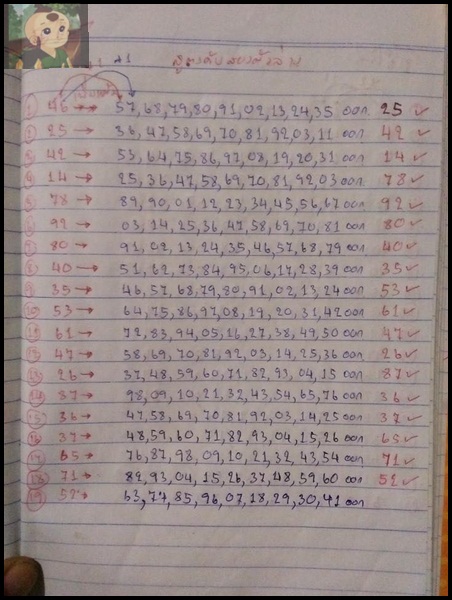 +1 สูตรดับสองตัวล่าง
1 46 → 57,68,79,80,91,02,13,24,35 ออก 25 ✓
2 25 → 36,47,58,69,70,81,92,03,11 ออก 42 ✓
3 42 → 53,64,75,86,97,08,19,20,31 ออก 14 ✓
4 14 → 25,36,47,58,69,70,81,92,03 ออก 78 ✓
5 78 → 89,90,01,12,23,34,45,56,67 ออก 92 ✓
6 92 → 03,14,25,36,47,58,69,70,81 ออก 80 ✓
7 80 → 91,02,13,24,35,46,57,68,79 ออก 40 ✓
8 40 → 51,62,73,84,95,06,17,28,39 ออก 35 ✓
9 35 → 46,57,68,79,80,91,02,13,24 ออก 53 ✓
10 53 → 64,75,86,97,08,19,20,31,42 ออก 61 ✓
11 61 → 72,83,94,05,16,27,38,49,50 ออก 47 ✓
12 47 → 58,69,70,81,92,03,14,25,36 ออก 26 ✓
13 26 → 37,48,59,60,71,82,93,04,15 ออก 87 ✓
14 87 → 98,09,10,21,32,43,54,65,76 ออก 36 ✓
15 36 → 47,58,69,70,81,92,03,14,25 ออก 37 ✓
16 37 → 48,59,60,71,82,93,04,15,26 ออก 65 ✓
17 65 → 76,87,98,09,10,21,32,43,54 ออก 71 ✓
18 71 → 82,93,04,15,26,37,48,59,60 ออก 52 ✓
19 52 → 63,74,85,96,07,18,29,30,41 ออก